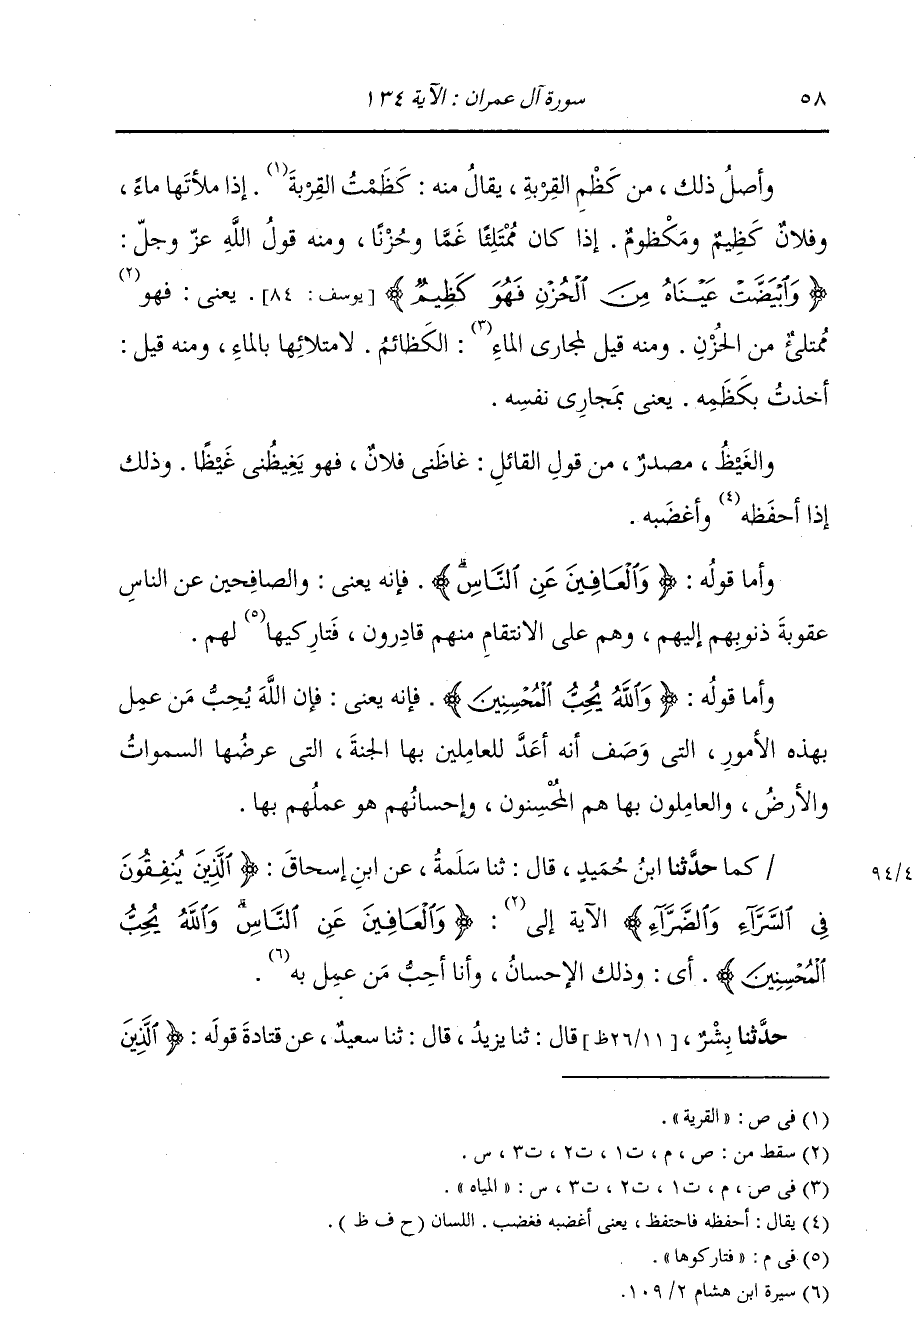 ٥٨ سورة آل عمران : الآية ١٣٤
وأصلُ ذلك ، من كَظْمِ القِرْبةِ ، يقالُ منه : كَظَمْتُ القِربةَ(١) . إذا ملأتَها ماءً ،
وفلانٌ كَظِيمٌ ومَكْظومٌ . إذا كان مُمْتَلِئًا غَمًّا وحُزْنًا ، ومنه قولُ اللَّهِ عزّ وجلّ :
﴿ وَٱبْيَضَّتْ عَيْنَاهُ مِنَ ٱلْحُزْنِ فَهُوَ كَظِيمٌ ﴾ [يوسف : ٨٤] . يعنى : فهو(٢)
مُمتلئٌ من الحُزْنِ . ومنه قيل لمجارى الماءِ(٣) : الكَظائمُ . لامتلائِها بالماءِ ، ومنه قيل :
أخذتُ بكَظَمِه . يعنى بمَجارِى نفسِه .
والغَيْظُ ، مصدرٌ ، من قولِ القائلِ : غاظَنى فلانٌ ، فهو يَغِيظُنى غَيْظًا . وذلك
إذا أحفَظه(٤) وأغضَبه .
وأما قولُه : ﴿ وَٱلْعَافِينَ عَنِ ٱلنَّاسِۗ ﴾ . فإنه يعنى : والصافِحين عن الناسِ
عقوبةَ ذنوبِهم إليهم ، وهم على الانتقامِ منهم قادِرون ، فَتارِكيها(٥) لهم .
وأما قولُه : ﴿ وَٱللَّهُ يُحِبُّ ٱلْمُحْسِنِينَ ﴾ . فإنه يعنى : فإن اللَّهَ يُحِبُّ مَن عمِل
بهذه الأمورِ ، التى وَصَف أنه أعَدَّ للعاملِين بها الجنةَ ، التى عرضُها السمواتُ
والأرضُ ، والعامِلون بها هم المُحْسِنون ، وإحسانُهم هو عملُهم بها .
/ كما حدَّثنا ابنُ حُمَيدٍ ، قال : ثنا سَلَمةُ ، عن ابنِ إسحاقَ : ﴿ ٱلَّذِينَ يُنفِقُونَ ٩٤/٤
فِى ٱلسَّرَّآءِ وَٱلضَّرَّآءِ ﴾ الآية إلى(٢) : ﴿ وَٱلْعَافِينَ عَنِ ٱلنَّاسِۗ وَٱللَّهُ يُحِبُّ
ٱلْمُحْسِنِينَ ﴾ . أى : وذلك الإحسانُ ، وأنا أُحِبُّ مَن عمِل به(٦) .
حدَّثنا بِشْرٌ ، [٢٦/١١ظ] قال : ثنا يزيدُ ، قال : ثنا سعيدٌ ، عن قتادةَ قولَه : ﴿ ٱلَّذِينَ
(١) فى ص : « القرية » .
(٢) سقط من : ص ، م ، ت١ ، ت٢ ، ت٣ ، س .
(٣) فى ص ، م ، ت١ ، ت٢ ، ت٣ ، س : « المياه » .
(٤) يقال : أحفظه فاحتفظ ، يعنى أغضبه فغضب . اللسان (ح ف ظ ) .
(٥) فى م : « فتاركوها » .
(٦) سيرة ابن هشام ٢/ ١٠٩.